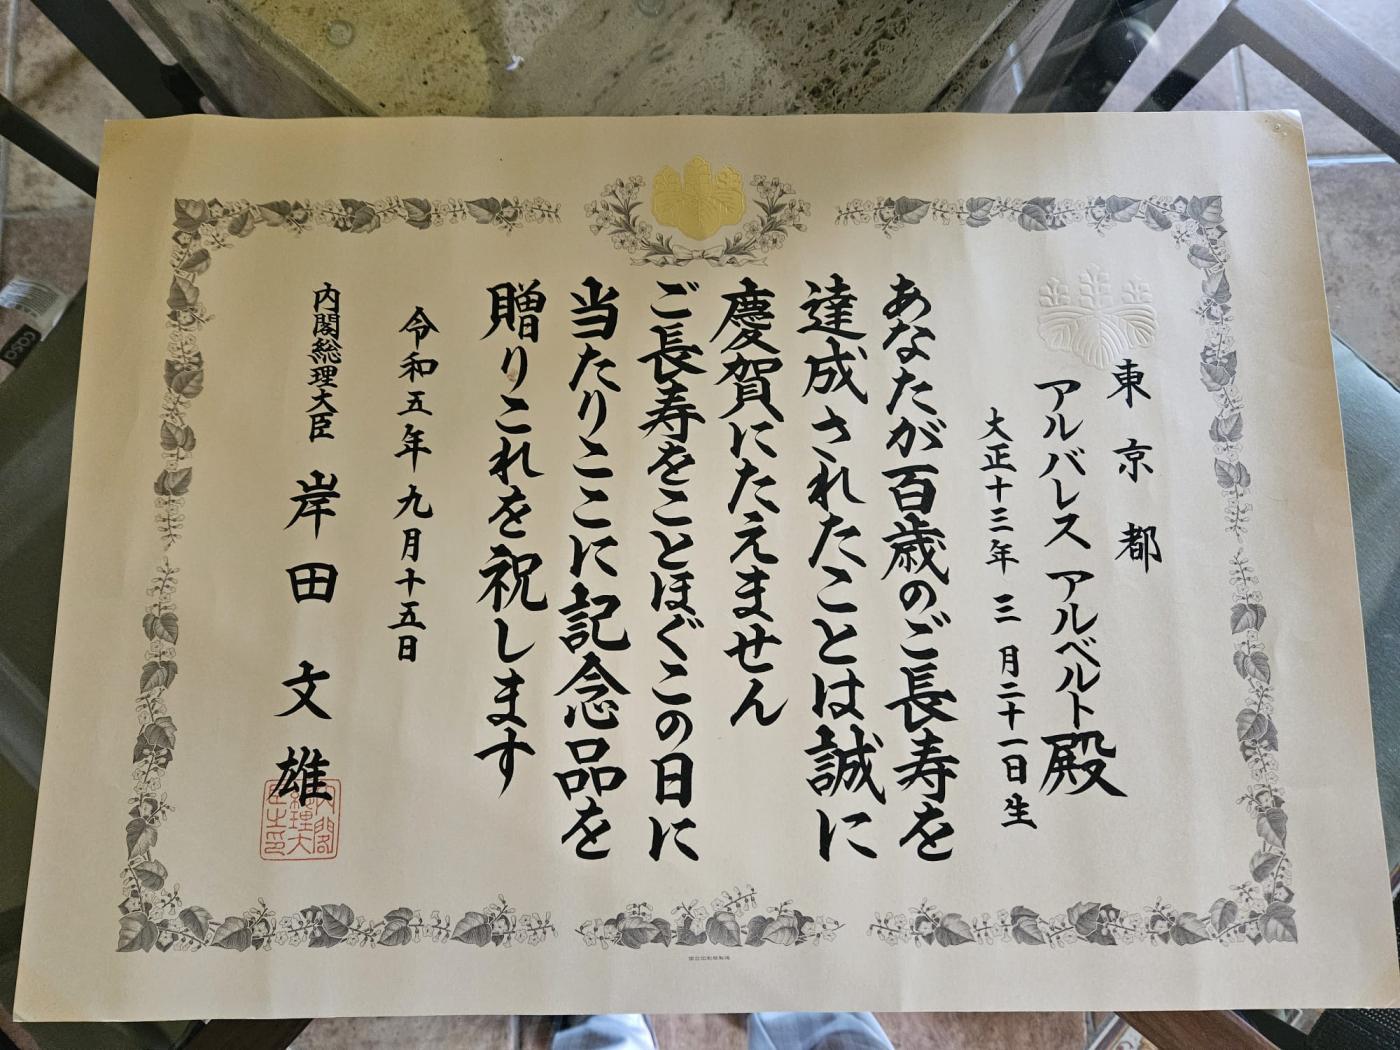 東京都
アルバレス アルベルト殿
大正十三年三月二十一日生
あなたが百歳のご長寿を
達成されたことは誠に
慶賀にたえません
ご長寿をことほぐこの日に
当たりここに記念品を
贈りこれを祝します
令和五年九月十五日
内閣総理大臣 岸田文雄
内閣総理大臣之印